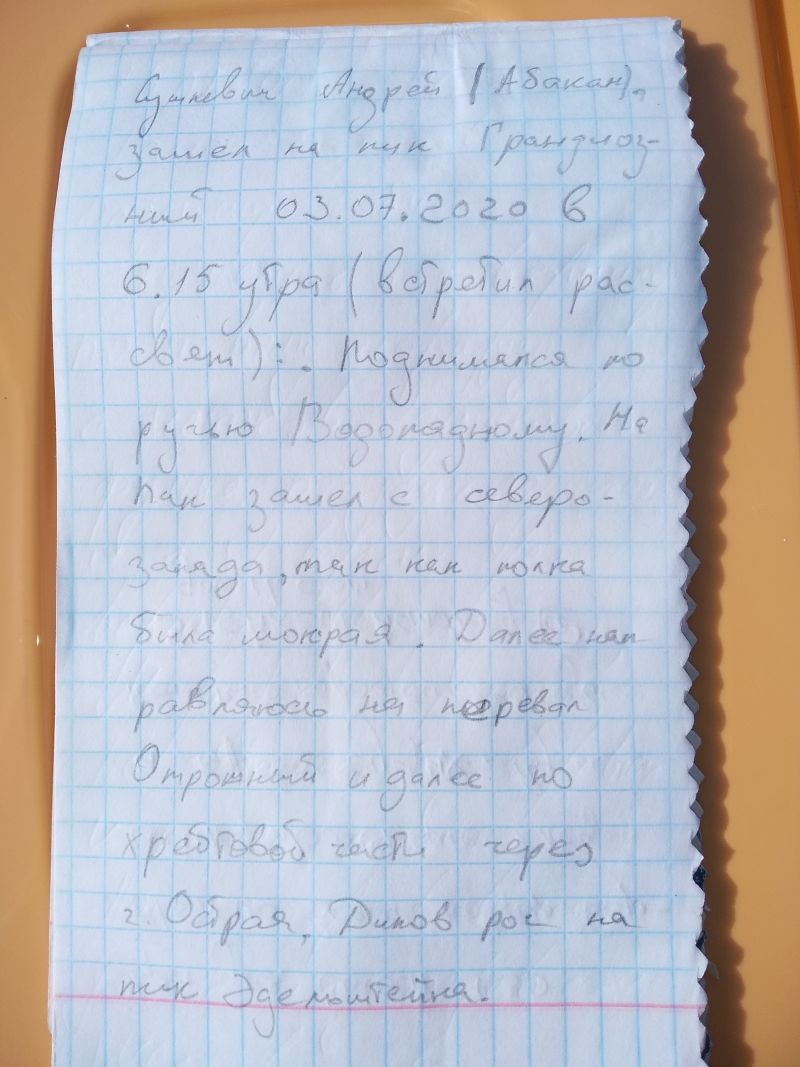 Сушкевич Андрей (Абакан),
зашёл на пик Грандиоз-
ный 03.07.2020 в
6.15 утра (встретил рас-
свет):. Поднимался по
ручью Водопадному. На
пик зашел с северо-
запада, так как полка
была мокрая. Далее нап
равляюсь на перевал
Отрожный и далее по
хребтовой части через
г. Острая, Диков рог на
пик Эдельштейна.